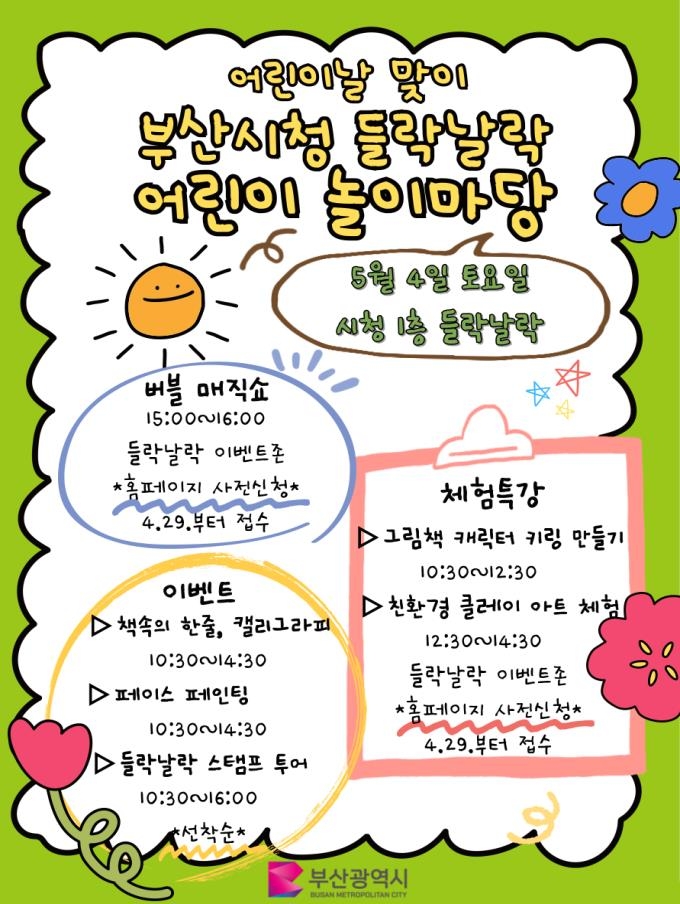 어린이날 맞이
부산시청 들락날락
어린이 놀이마당
5월 4일 토요일
시청 1층 들락날락
버블 매직쇼
15:00~16:00
들락날락 이벤트존
*홈페이지 사전신청*
4.29.부터 접수
체험특강
▷그림책 캐릭터 키링 만들기
10:30~12:30
▷친환경 클레이 아트 체험
12:30~14:30
들락날락 이벤트존
*홈페이지 사전신청*
4.29.부터 접수
이벤트
▷책속의 한줄, 캘리그라피
10:30~14:30
▷페이스 페인팅
10:30~14:30
▷들락날락 스탬프 투어
10:30~16:00
*선착순*
부산광역시
BUSAN METROPOLITAN CITY